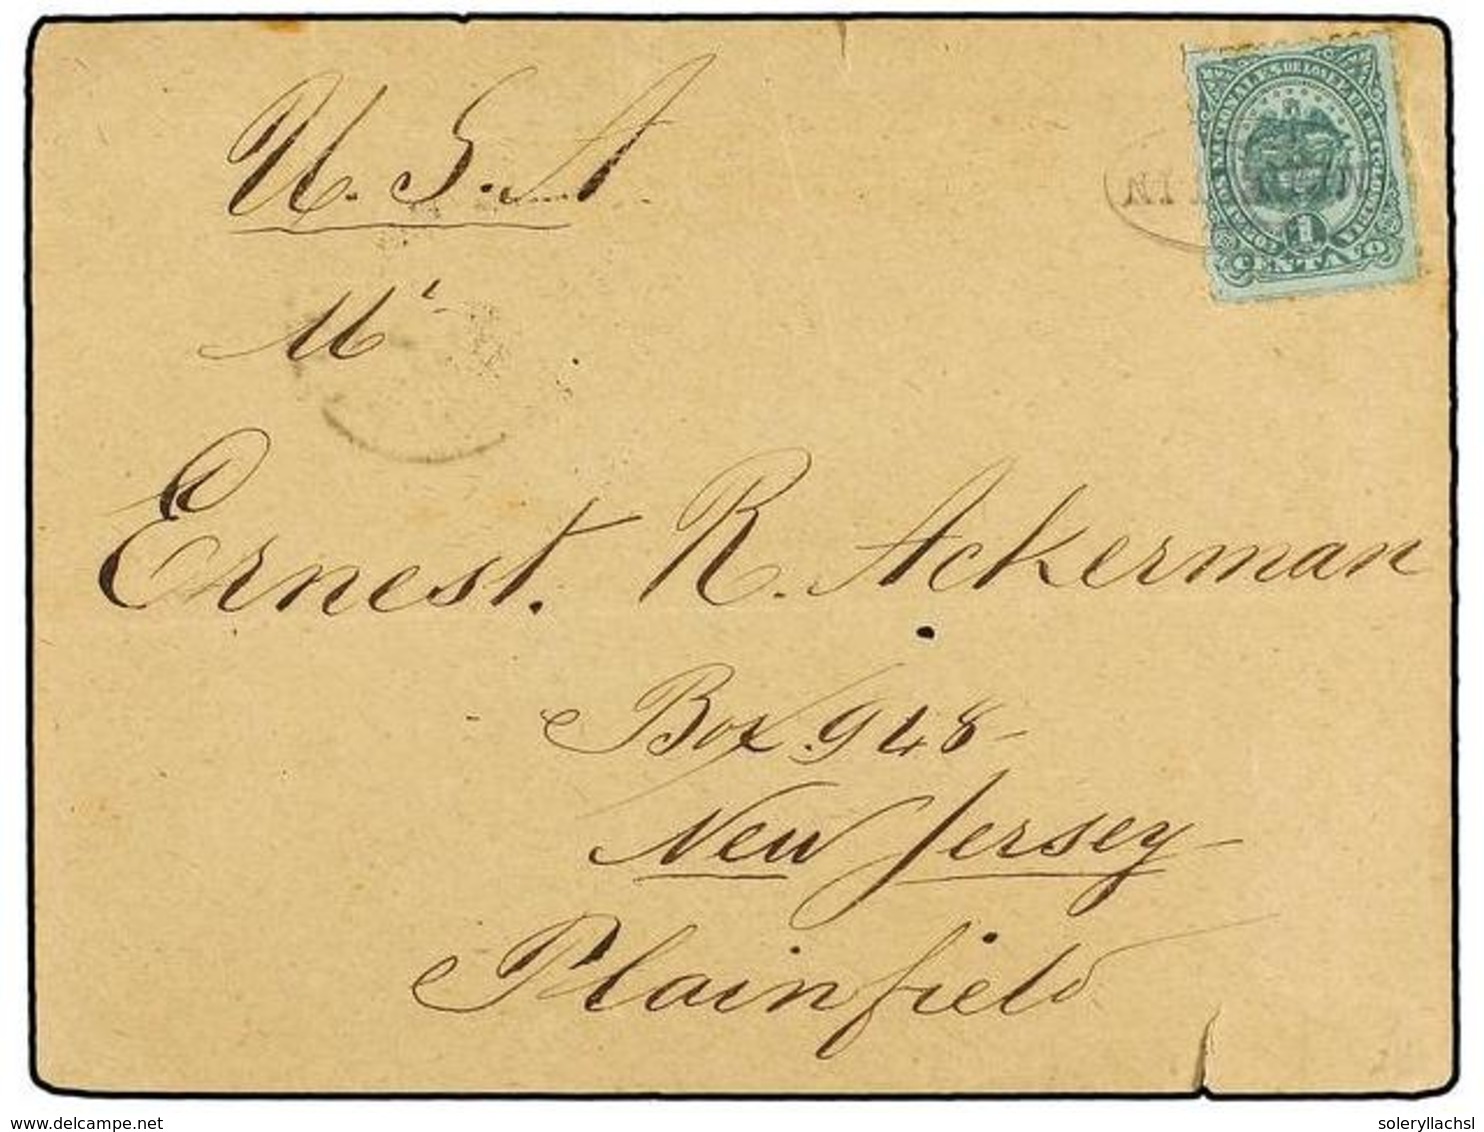 U. S. A.
Mr
Ernest. R. Ackerman
Box 948
New Jersey
Plainfield
CORREOS NACIONALES DE LOS E.E. U.U. DE COLOMBIA
1
CENTAVO
www.delcampe.net
soleryllachsl